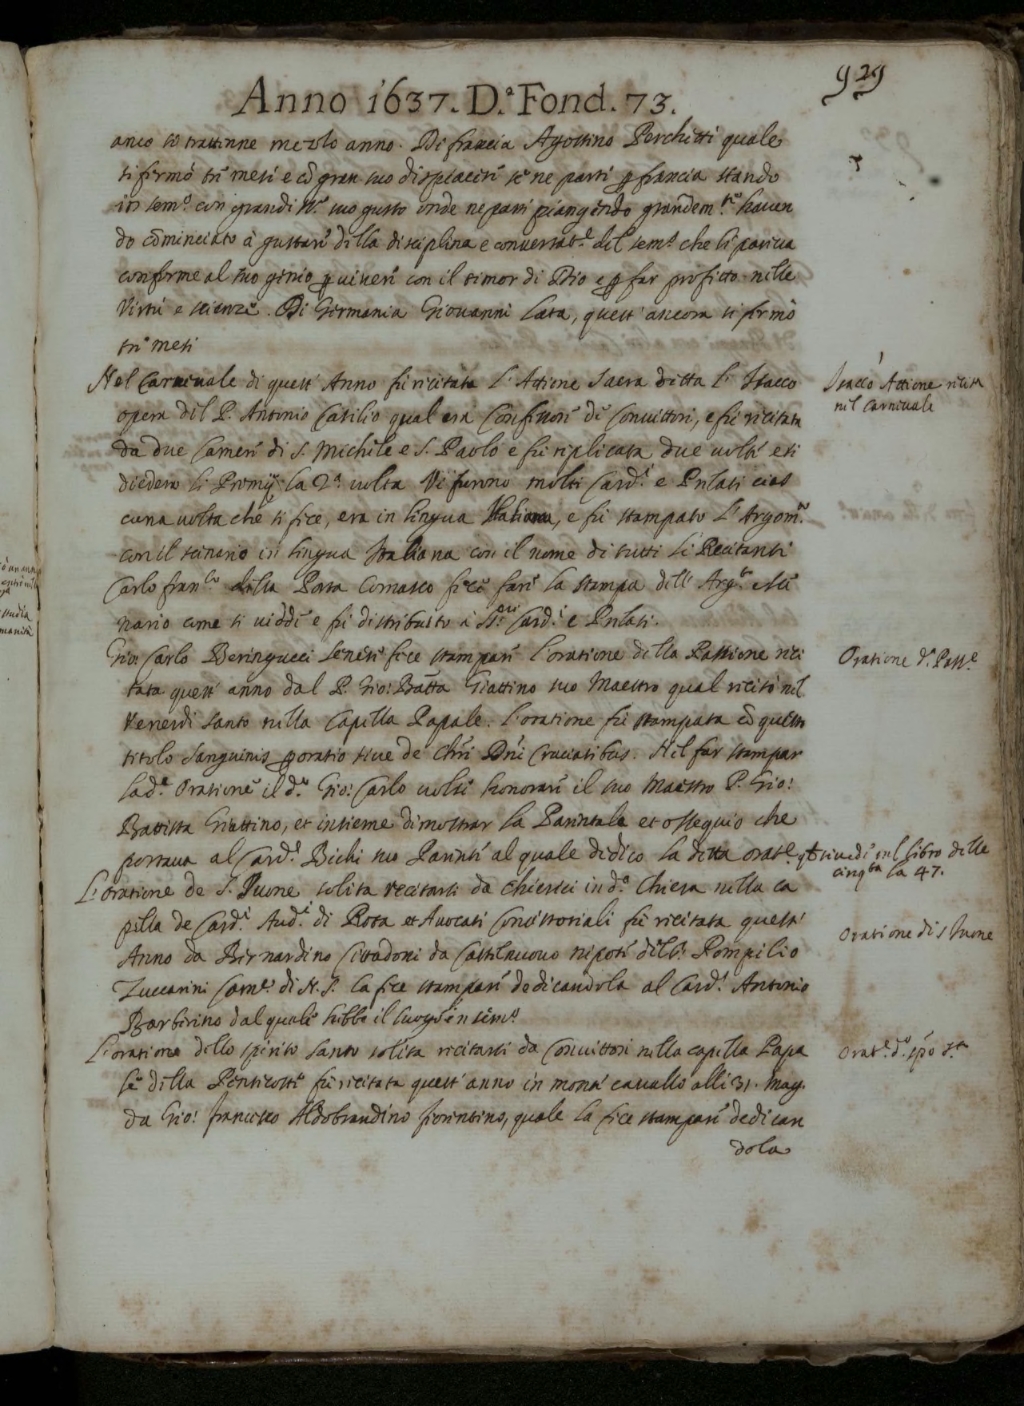 929
Anno 1637. D.ª Fond. 73.
anco si trattenne mezzo anno. Di francia Agostino Porchetti quale
si firmò tre mesi e cõ gran suo dispiacere se ne partì ꝑ francia stando
in sem.º con grandiss.º suo gusto onde ne partì piangendo grandem.te haven
do cõminciato à gustare della disciplina e conversat.e del sem.º che li pareva
conforme al suo genio ꝑ vivere con il timor di Dio e ꝑ far profitto nelle
Virtù e scienze. Di Germania Giovanni Lata, quest' ancora si firmò
tre mesi
Nel Carnevale di quest' Anno fù recitata L'Attione Sacra detta L'Isacco
opera del P. Antonio Casilio qual era Confessore de Convittori, e fù recitata
da due Camere di S. Michele e S. Paolo e fù replicata due volte e si
diedero li Premij la 2.ª volta Vi furono molti Card.i e Prelati cias
cuna volta che si fece, era in lingua Italiana, e fù stampato L'Argom.to
con il scenario in lingua Italiana con il nome di tutti li Recitanti
Carlo fran.co della Porta Comasco fece fare la stampa dell' Arg.to e sce
nario come si vidde e fù distribuito à SS.ri Card.i e Prelati.
Gio: Carlo Beringucci Senese fece stampare l'oratione della Passione reci
tata quest' anno dal P. Gio: Batta Giattino suo Maestro qual recitò nel
Venerdi santo nella Capella Papale. L'oratione fù stampata cõ questo
titolo Sanguinis ꝑoratio sive de Chri Dni Cruciatibus. Nel far stampar
la d.ª Oratione il d.º Gio: Carlo volse honorare il suo Maestro P. Gio:
Battista Giattino, et insieme dimostrar la Parentela et ossequio che
portava al Card.l Bichi suo Parente al quale dedico la detta orat.e
L'oratione de S. Ivone solita recitarsi da Chierici in d.ª Chiesa nella ca
pella de Card.i Aud.i di Rota et Avocati Concistoriali fù recitata quest'
Anno da Bernardino Cittadoni da Castelnuovo nepote del S.r Pompilio
Zuccarini Cam.re di N.S. la fece stampare dedicandola al Card.l Antonio
Barberino dal quale hebbe il luogo in sem.º
L'oratione dello spirito santo solita recitarsi da Convittori nella capella Papa
le della Pentecoste fù recitata quest' anno in monte cavallo alli 31. Mag.
da Gio: francesco Aldobrandino fiorentino, quale la fece stampare dedican
dola
Isacco Attione recitata
nel Carnevale
Oratione d. Pass.e
si vede nel libro delle
cinq.ta la 47.
Oratione di S Ivone
Orat.e d.º spo s.to